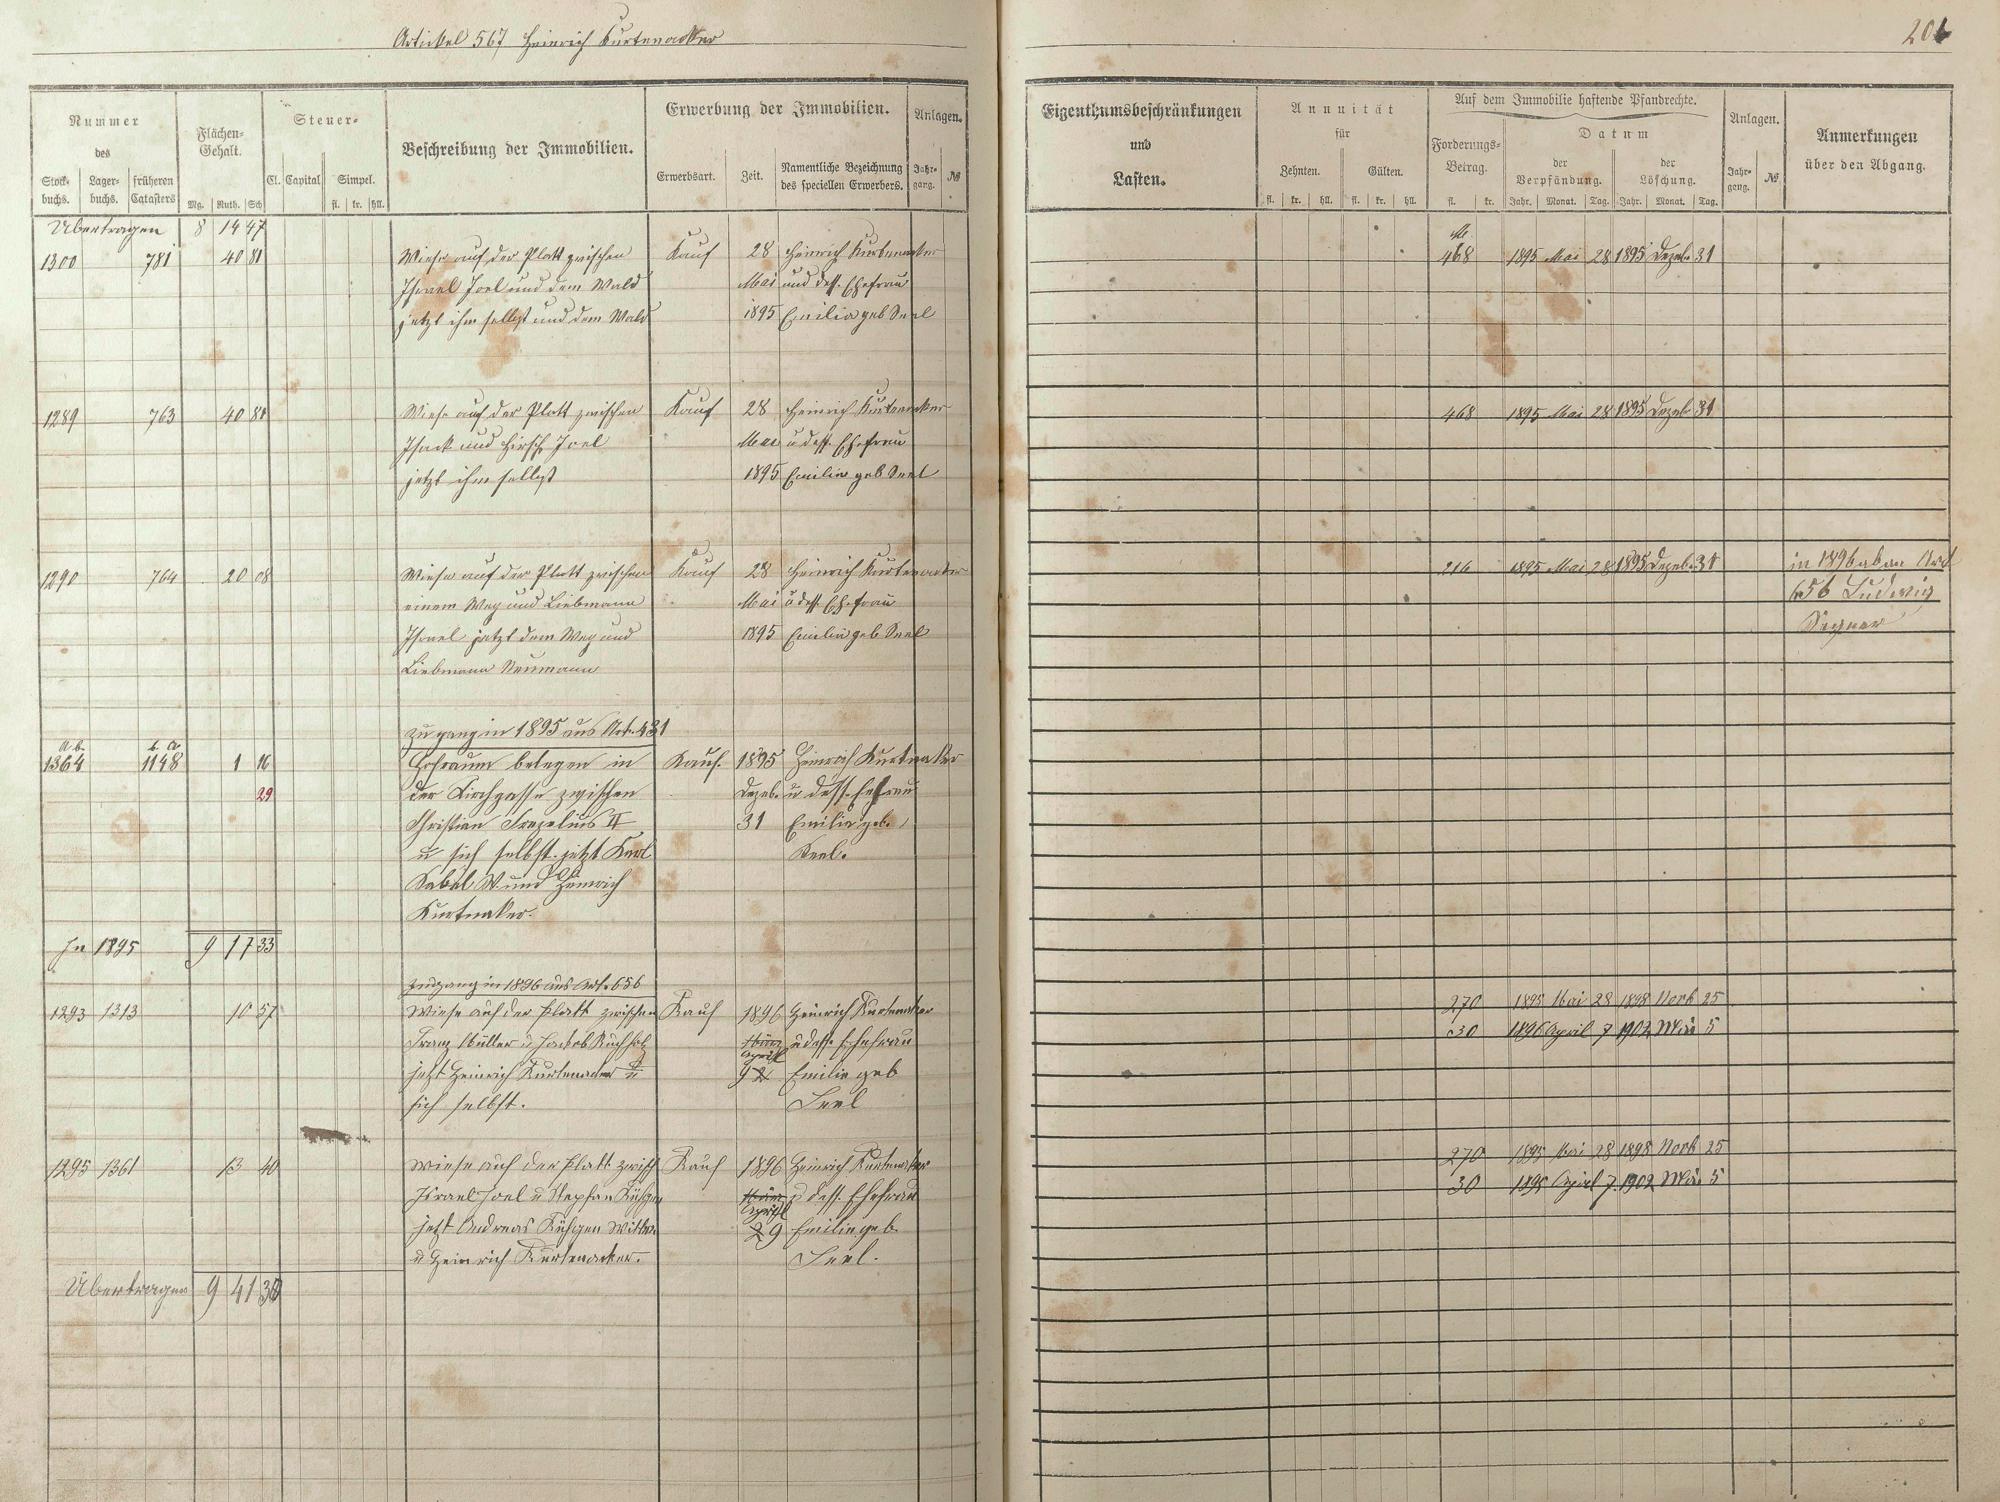 Artickel 567 Heinrich Kurtenacker
201
Nummer des
Stock-buchs. Lager-buchs. früheren Catasters
Flächen-Gehalt.
Mg. Ruth. Sch
Steuer-
Cl. Capital Simpel.
fl. kr. hll.
Beschreibung der Immobilien.
Erwerbung der Immobilien.
Erwerbsart. Zeit. Namentliche Bezeichnung des speciellen Erwerbers.
Anlagen.
Jahr-gang. №
Eigenthumsbeschränkungen und Lasten.
Annuität für
Zehnten. Gülten.
fl. kr. hll. fl. kr. hll.
Auf dem Immobilie haftende Pfandrechte.
Forderungs-Betrag.
fl. kr.
Datum
der Verpfändung. der Löschung.
Jahr. Monat. Tag. Jahr. Monat. Tag.
Anlagen.
Jahr-gang. №
Anmerkungen über den Abgang.
Übertragen 8 14 47
1300 781 40 81 Wiese auf der Platt zwischen Kauf 28 Heinrich Kurtenacker 468 1895 Mai 28 1895 Dezeb. 31
Israel Joel und dem Wald Mai und dess. Ehefrau
jetzt ihm selbst und dem Wald 1895 Emilia geb Seel
1289 763 40 81 Wiese auf der Platt zwischen Kauf 28 Heinrich Kurtenacker 468 1895 Mai 28 1895 Dezeb 31
Isack und Hirsch Joel Mai u dess. Ehefrau
jetzt ihm selbst 1895 Emilia geb Seel
1290 764 20 08 Wiese auf der Platt zwischen Kauf 28 Heinrich Kurtenacker 216 1895 Mai 28 1895 Dezeb. 31 in 1896 ab an Art
einem Weg und Liebmann Mai u dess. Ehefrau 656 Ludwig
Israel jetzt dem Weg und 1895 Emilia geb Seel
Liebmann Neumann
Zugang in 1895 aus Art. 431
a. b. b. a.
1364 1148 1 16 Hofraum belegen in Kauf. 1895 Heinrich Kurtnaker
29 der Kirchgasse zwischen Dezeb. u. dess. Ehefrau
Christian Frezelius II 31 Emilia geb.
u sich selbst. jetzt Karl Seel.
und Heinrich
Kurtnaker.
In 1895 9 17 33
Zugang in 1896 aus Art. 656
1293 1313 10 57 Wiese auf der Platt zwischen Kauf 1896 Heinrich Kurtenacker 270 1895 Mai 28 1898 Novb 25
Franz Müller u Jackob Buchholz März u dess Ehefrau 30 1896 April 7 1902 Mär 5
April
jetzt Heinrich Kurtenacker u 9 Emilie geb
sich selbst. Seel
1295 1361 13 40 Wiese auf der Platt zwisch Kauf 1896 Heinrich Kurtenacker 270 1895 Mai 28 1898 Novb 25
Israel Joel u Stephan März u dess. Ehefrau 30 1895 April 7. 1902 Mär. 5
April
jetzt Andreas Wittw. 29 Emilie geb.
u Heinrich Kurtenacker. Seel.
Übertragen 9 41 30